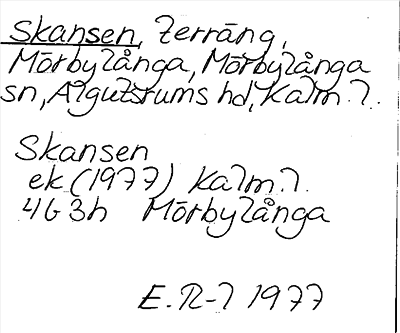 Skansen, Terräng,
Mörbylånga, Mörbylånga
sn, Algutsrums hd, Kalm. l.
Skansen
ek (1977) Kalm. l.
4G 3h Mörbylånga
E. R-l 1977